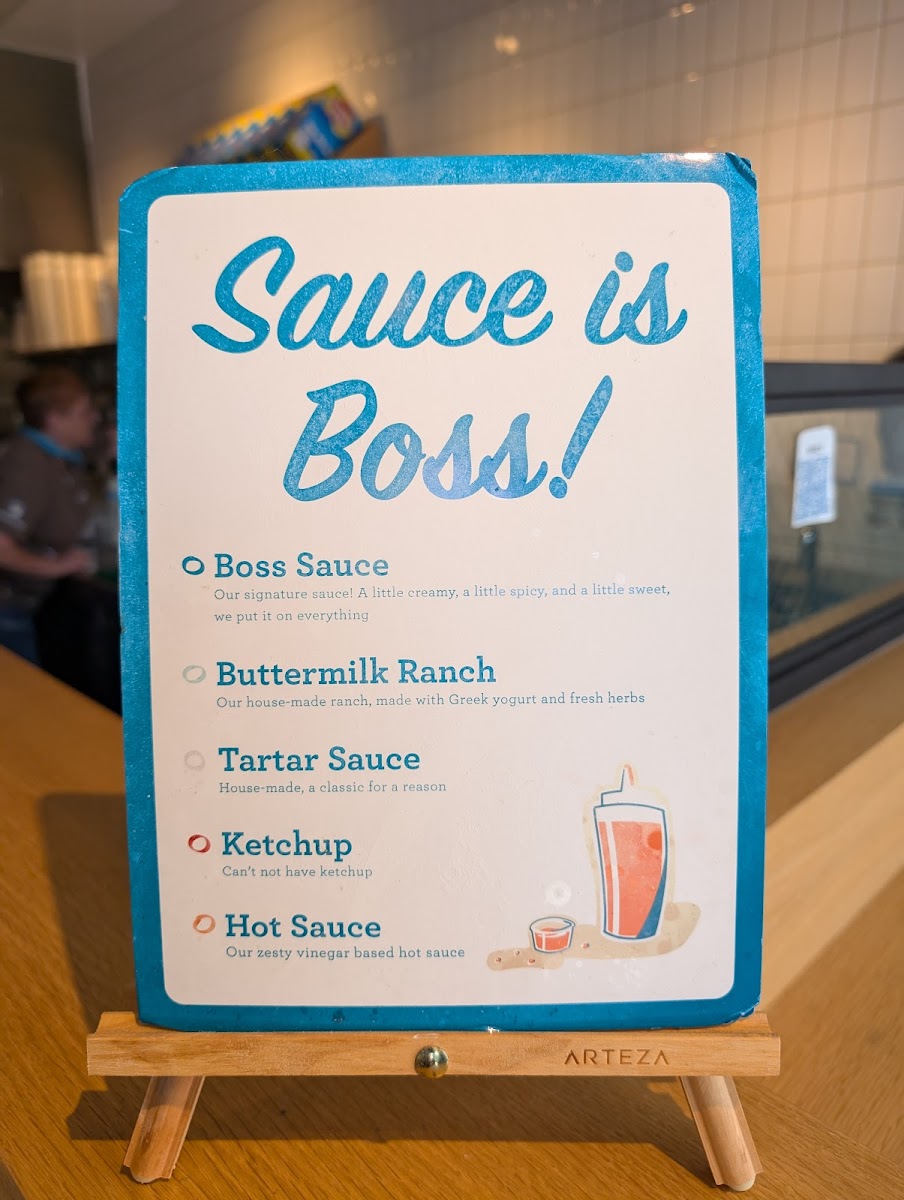 Sauce is
Boss!
Boss Sauce
Our signature sauce! A little creamy, a little spicy, and a little sweet,
we put it on everything
Buttermilk Ranch
Our house-made ranch, made with Greek yogurt and fresh herbs
Tartar Sauce
House-made, a classic for a reason
Ketchup
Can't not have ketchup
Hot Sauce
Our zesty vinegar based hot sauce
ARTEZA